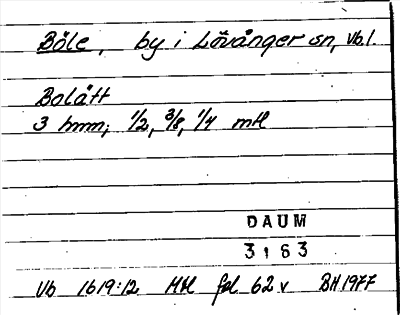 Böle, by i Lövånger sn, Vb l.
Bolått
3 hmm; 1/2, 3/8, 1/4 mtl
DAUM
3163
Vb 1619:12 Mtl fol 62 v BH 1977